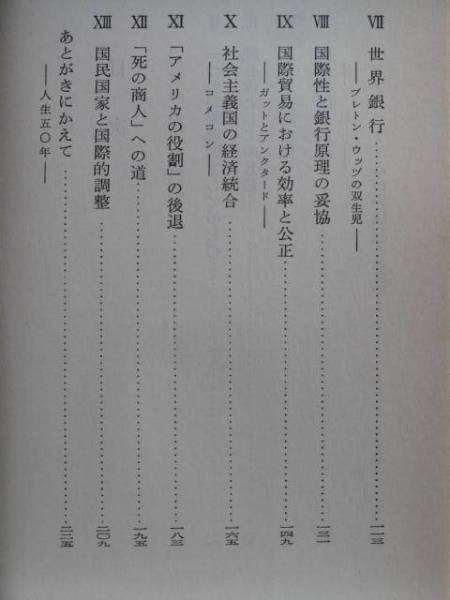 VII 世界銀行……………一一三
──ブレトン・ウッヅの双生児──
VIII 国際性と銀行原理の妥協……………一三一
IX 国際貿易における効率と公正……………一四九
──ガットとアンクタード──
X 社会主義国の経済統合……………一六五
──コメコン──
XI 「アメリカの役割」の後退……………一八三
XII 「死の商人」への道……………一九五
XIII 国民国家と国際的調整……………二〇九
あとがきにかえて……………二二五
──人生五〇年──